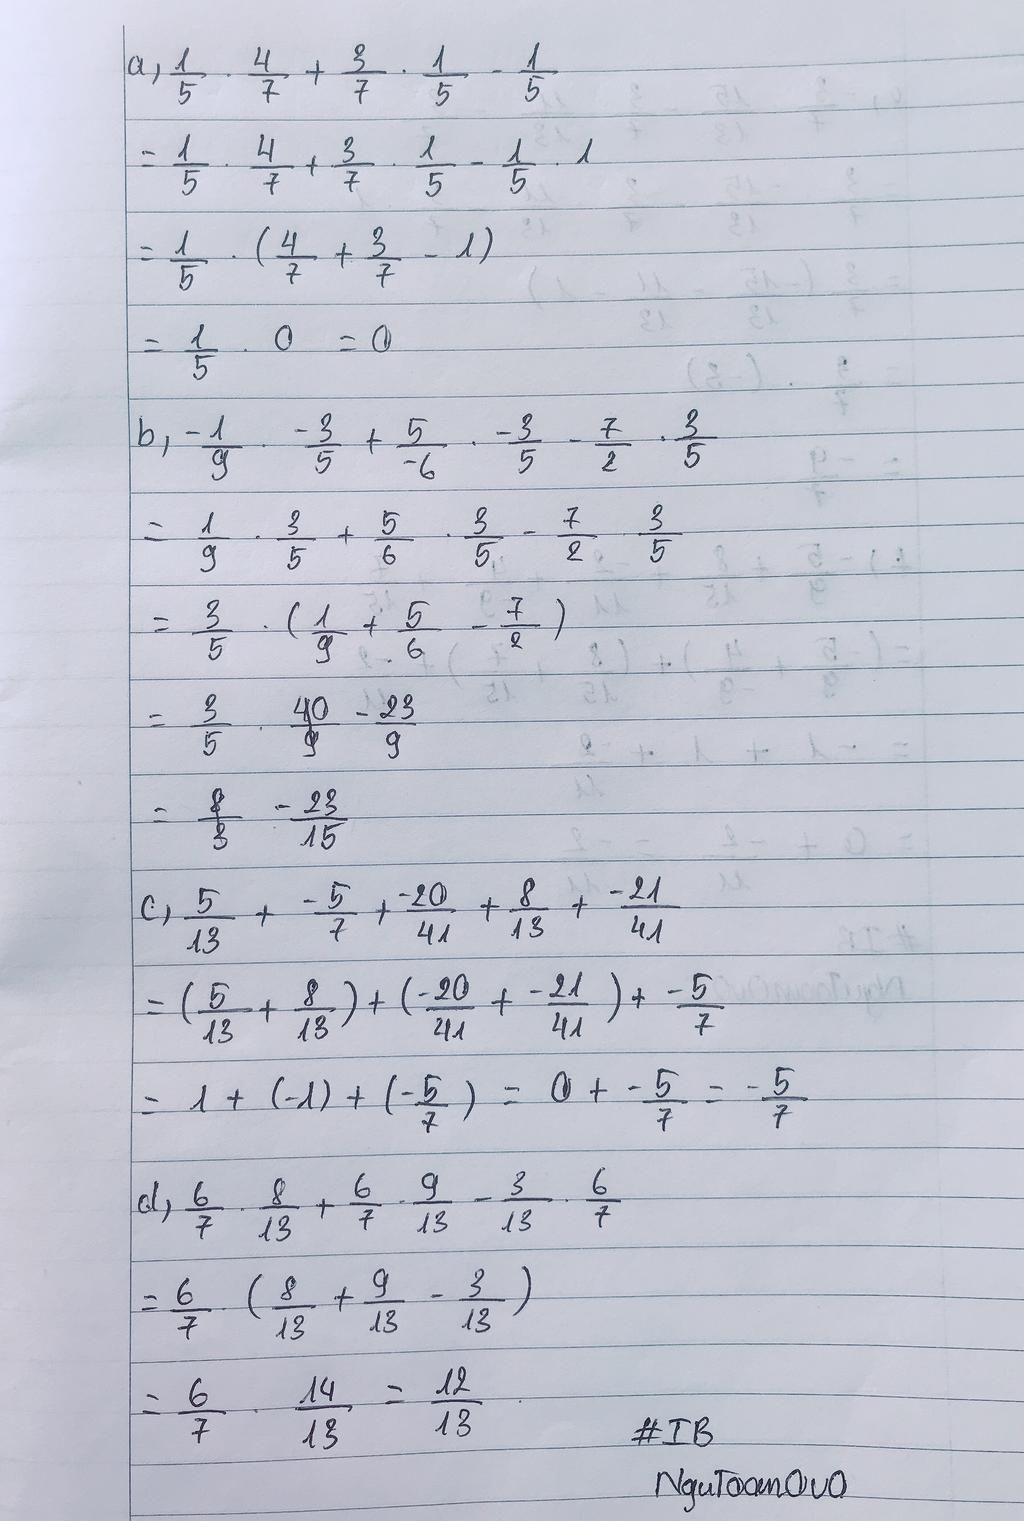 a, 1/5 . 4/7 + 3/7 . 1/5 - 1/5
= 1/5 . 4/7 + 3/7 . 1/5 - 1/5 . 1
= 1/5 . (4/7 + 3/7 - 1)
= 1/5 . 0 = 0
b, -1/9 . -3/5 + 5/-6 . -3/5 - 7/2 . 3/5
= 1/9 . 3/5 + 5/6 . 3/5 - 7/2 . 3/5
= 3/5 . (1/9 + 5/6 - 7/2)
= 3/5 . -23/9
= -23/15
c, 5/13 + -5/7 + -20/41 + 8/13 + -21/41
= (5/13 + 8/13) + (-20/41 + -21/41) + -5/7
= 1 + (-1) + (-5/7) = 0 + -5/7 = -5/7
d, 6/7 . 8/13 + 6/7 . 9/13 - 3/13 . 6/7
= 6/7 . (8/13 + 9/13 - 3/13)
= 6/7 . 14/13 = 12/13
#IB
NguToanOvO